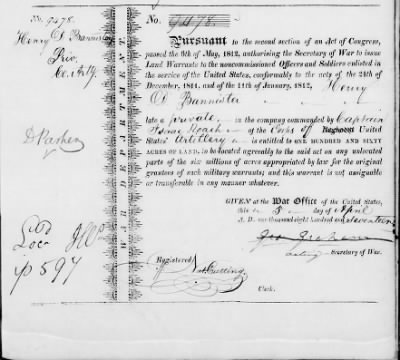 No. 9478.
Henry D. Bannister
Priv.
Co. Arty.
D. Parker
No. 9478.
Pursuant to the second section of an Act of Congress,
passed the 6th of May, 1812, authorising the Secretary of War to issue
Land Warrants to the noncommissioned Officers and Soldiers enlisted in
the service of the United States, conformably to the acts of the 24th of
December, 1811, and of the 11th of January, 1812, Henry
D. Bannister
late a private in the company commanded by Captain
Isaac Roach of the Corps of Regiment United
States' Artillery is entitled to ONE HUNDRED AND SIXTY
ACRES OF LAND, to be located agreeably to the said act on any unlocated
parts of the six millions of acres appropriated by law for the original
grantees of such military warrants; and this warrant is not assignable
or transferable in any manner whatever.
WAR DEPARTMENT.
GIVEN at the War Office of the United States,
this 5 day of April
A. D. one thousand eight hundred and seventeen
Geo Graham
acting Secretary of War.
Registered
Nat Cutting
Clerk.
Loc
p 597